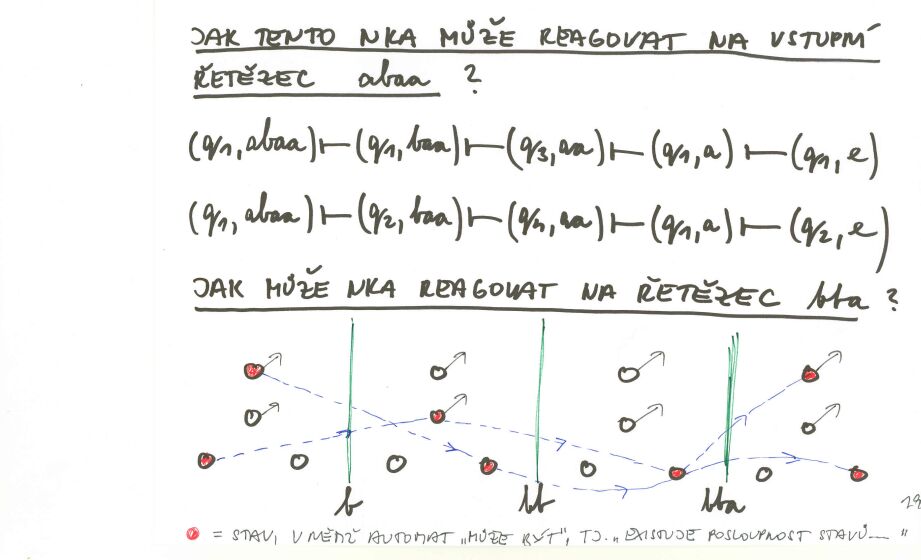 JAK TENTO NKA MŮŽE REAGOVAT NA VSTUPNÍ
ŘETĚZEC abaa ?
(q1, abaa) ⊢ (q1, baa) ⊢ (q3, aa) ⊢ (q1, a) ⊢ (q1, e)
(q1, abaa) ⊢ (q2, baa) ⊢ (q4, aa) ⊢ (q1, a) ⊢ (q2, e)
JAK MŮŽE NKA REAGOVAT NA ŘETĚZEC bba ?
b bb bba
= STAV, V NĚMŽ AUTOMAT „MŮŽE BÝT", TJ. „EXISTUJE POSLOUPNOST STAVŮ... "